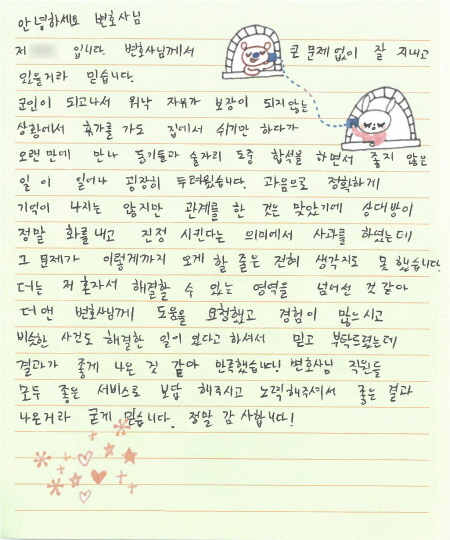 안녕하세요 변호사님
저 입니다. 변호사님께서 큰 문제 없이 잘 지내고
있을거라 믿습니다.
군인이 되고나서 워낙 자유가 보장이 되지않는
상황에서 휴가를 가도 집에서 쉬기만 하다가
오랜만에 만나 동기들과 술자리 도중 합석을 하면서 좋지 않은
일이 일어나 굉장히 두려웠습니다. 과음으로 정확하게
기억이 나지는 않지만 관계를 한 것은 맞았기에 상대방이
정말 화를내고 진정 시킨다는 의미에서 사과를 하였는데
그 문제가 이렇게까지 오게 할 줄은 전혀 생각지도 못했습니다.
더는 저 혼자서 해결할 수 있는 영역을 넘어선 것 같아
더앤 변호사님께 도움을 요청했고 경험이 많으시고
비슷한 사건도 해결한 일이 있다고 하셔서 믿고 부탁드렸는데
결과가 좋게 나온 것 같아 만족했습니다! 변호사님 직원들
모두 좋은 서비스로 보답 해주시고 노력해주셔서 좋은 결과
나온거라 굳게 믿습니다. 정말 감사합니다!